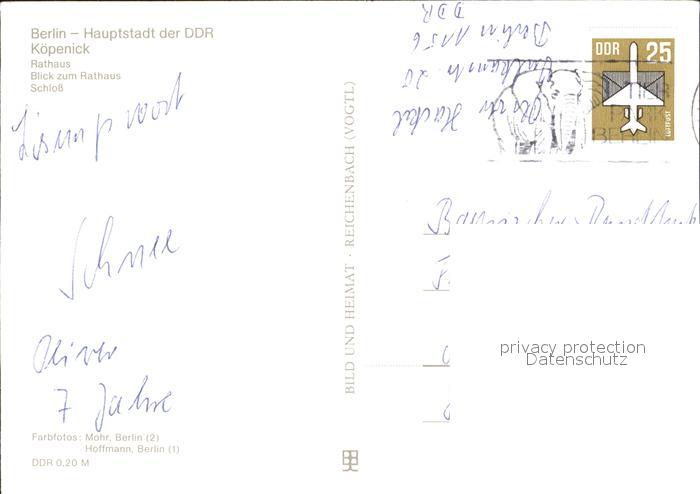 Berlin – Hauptstadt der DDR
Köpenick
Rathaus
Blick zum Rathaus
Schloß
Lösungswort
Schnee
Oliver
7 Jahre
Farbfotos: Mohr, Berlin (2)
Hoffmann, Berlin (1)
DDR 0,20 M
BILD UND HEIMAT · REICHENBACH (VOGTL)
Berlin 1156
DDR
DDR 25
LUFTPOST
HIER
BERLIN
Bayrischer Rundfunk
privacy protection
Datenschutz